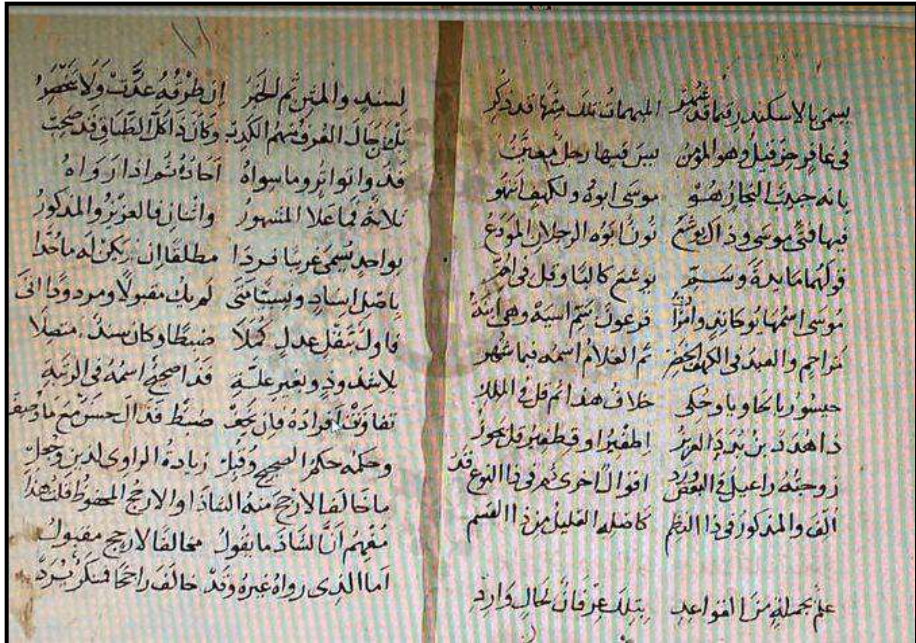 يسمى بالاسكندر فيما قد غبر المبهمات تلك منها قد ذكر
في غافر حزقيل وهو المؤمن ييس فيها رجل معين
بانه حبيب النجار هو موسى ابوه ولكهف
فيها فتى موسى وذاك يوشع نون ابوه الرجلان المودع
قولهما مايدة وسم يوشع كالبا وقل في ام
موسى اسمها يوكاند وامراة فرعون سم اسية وهي ابنة
مزاحم والعبد في الكهف الخضر ثم الغلام اسمه فيما شهر
حيسور بالحا وبا وحكى خلاف هذا ثم قل في الملك
ذا هدد بن بدد العزيز اطفير او قطفير قل يجوز
زوجته راعيل في البعض ورد اقوال اخرى ثم في ذا النوع قد
الف والمذكور في ذا النظم كاصله القليل من ذا القسم
علم بجملة من القواعد بتلك عرفان لحال وارد
لسند والمتن ثم الخبر ان طرقه عدت ولا تنحصر
بلغن حال العرف منهم الكذب وكان ذا كل الطباق قد صحب
فذو اتواتر وما سواه احاده تواذا رواه
ثلاثة فما علا المشهور واثنان فالعزيز والمذكور
بواحد يسمى غريبا فردا مطلقا ان يكن له ماخذا
باصل اسناد ونسبيا متى لم يك مقبولا ومردودا اتى
فاول بنقل عدل كملا ضبطا وكان سند متصلا
بلا شذوذ وبغير علة قد اصححه اسمه في الرتبة
تفاوتت افراده فان يخف ضبط فذا الحسن مع ما وصف
وحكمه حكم الصحيح وقبل زيادة الراوي لدين وجعل
ما خالفا لارجح منه الشاذ او الارجح المحفوظ قلت هذا
مفهم ان الشاذ ما يقول مخالفا لارجح مقبول
اما الذي رواه غيره وقد خالف راجحا فمنكر يرد